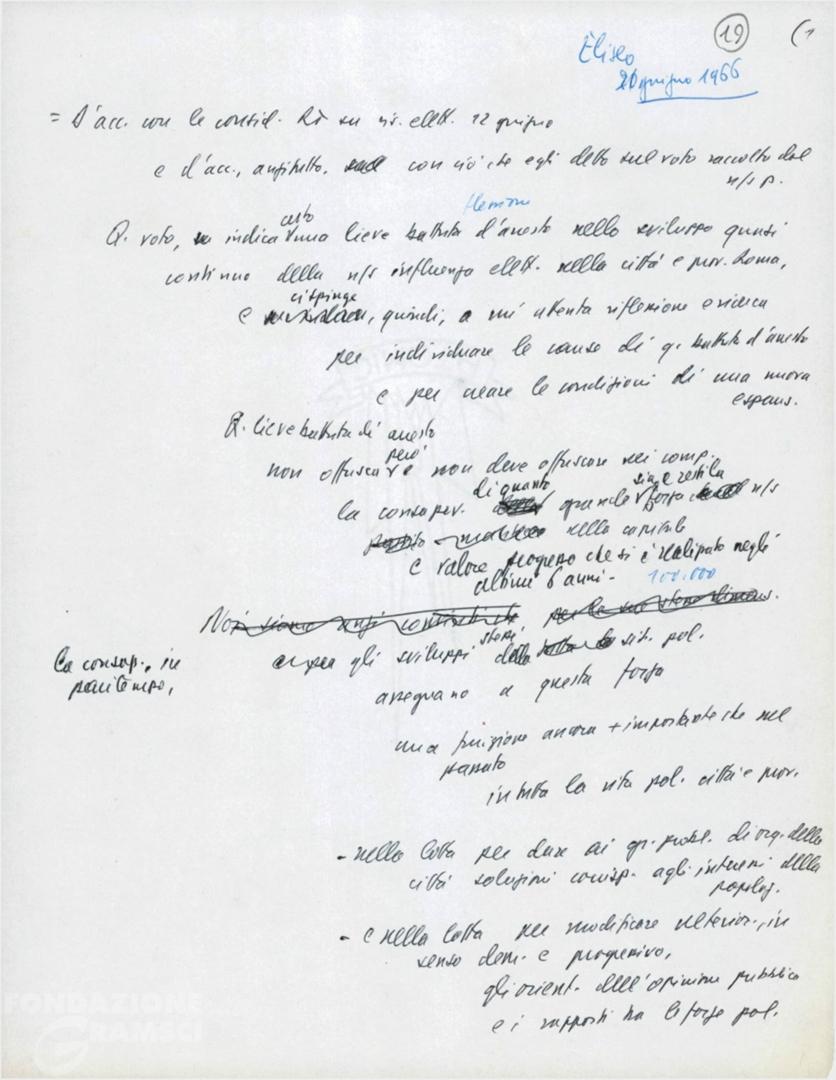 19 (1
Eliseo
20 giugno 1966
= D'acc. con le consid. su ris. elett. 12 giugno
e d'acc., anzitutto, con ciò che egli detto sul voto raccolto dal
n/s p.
certo flessione
Q. voto, indica una lieve battuta d'arresto nello sviluppo quasi
continuo della n/s influenza elett. nella città e prov. Roma,
ci spinge
e , quindi, a attenta riflessione e ricerca
per individuare le cause di q. battuta d'arresto
e per creare le condizioni di una nuova
espans.
Q. lieve battuta di arresto
però
non offusca e non deve offuscare nei comp.
di quanto sia
la consapev. grande forza n/s
nella capitale
e valore progresso che si è realizzato negli
ultimi 6 anni - 100.000
Noi siamo anzi
La consap., in
pari tempo,
stessi
gli sviluppi della sit. pol.
assegnano a questa forza
una funzione ancora + importante che nel
passato
in tutta la vita pol. città e prov.
- nella lotta per dare ai gr. probl. di org. della
città soluzioni corrisp. agli interessi della
popolaz.
- e nella lotta per modificare ulterior., in
senso dem. e progressivo,
gli orient. dell'opinione pubblica
e i rapporti tra le forze pol.
FONDAZIONE
GRAMSCI